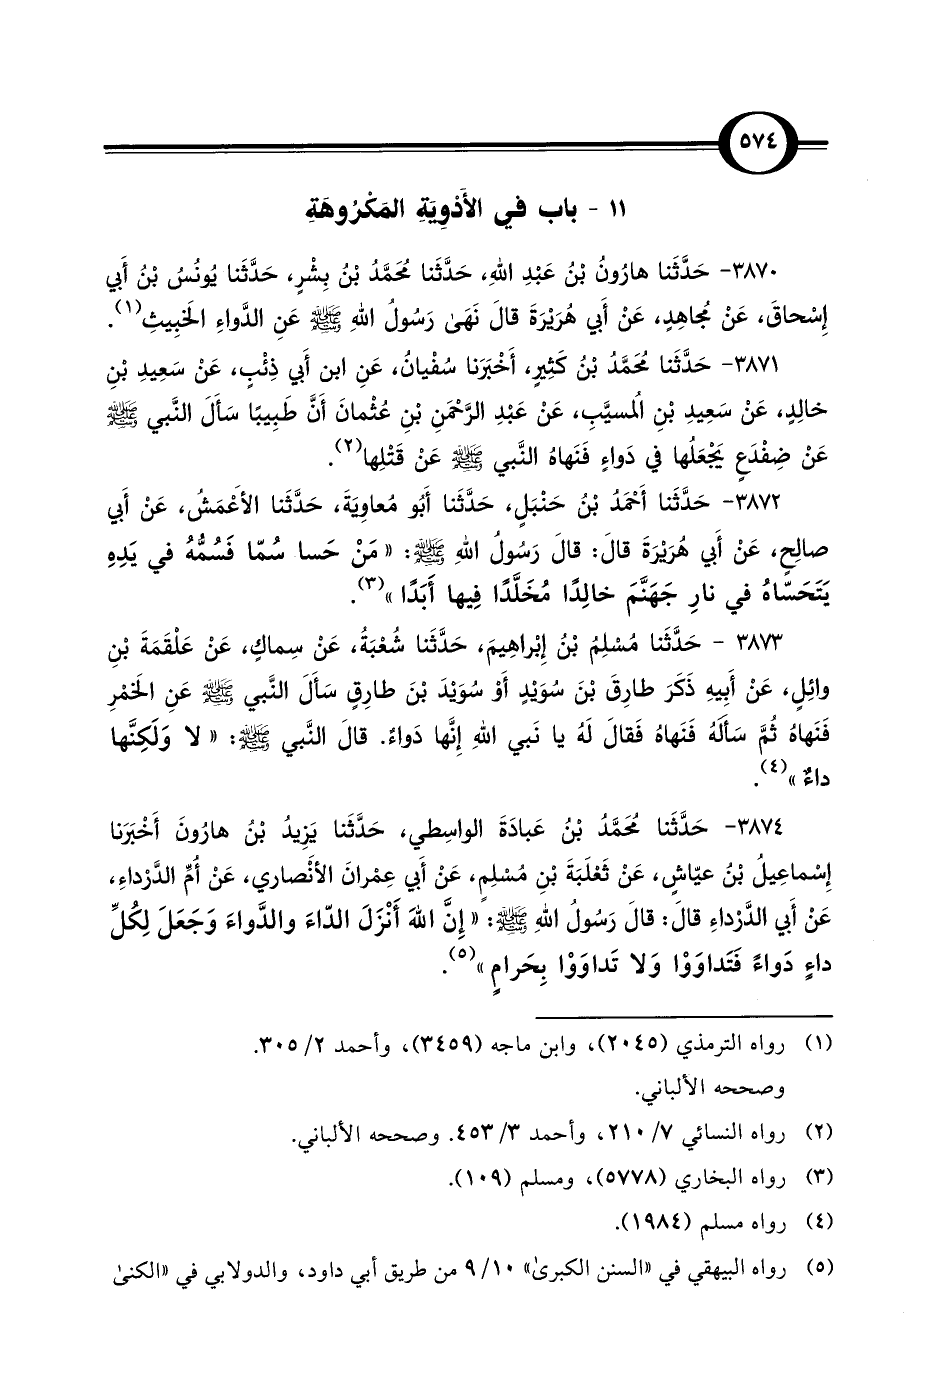 ٥٧٤
١١ - باب في الأَدْوِيَةِ المَكْرُوهَةِ
٣٨٧٠- حَدَّثَنا هارُونُ بْنُ عَبْدِ اللهِ، حَدَّثَنا مُحَمَّدُ بْنُ بِشْرٍ، حَدَّثَنا يُونُسُ بْنُ أَبي
إِسْحاقَ، عَنْ مُجاهِدٍ، عَنْ أَبي هُرَيْرَةَ قالَ نَهَىٰ رَسُولُ اللهِ ﷺ عَنِ الدَّواءِ الخَبِيثِ(١).
٣٨٧١- حَدَّثَنا مُحَمَّدُ بْنُ كَثِيرٍ، أَخْبَرَنا سُفْيانُ، عَنِ ابن أَبي ذِئْبٍ، عَنْ سَعِيدِ بْنِ
خالِدٍ، عَنْ سَعِيدِ بْنِ المُسيَّبِ، عَنْ عَبْدِ الرَّحْمَنِ بْنِ عُثْمانَ أَنَّ طَبِيبًا سَأَلَ النَّبي ﷺ
عَنْ ضِفْدَعٍ يَجْعَلُها في دَواءٍ فَنَهاهُ النَّبي ﷺ عَنْ قَتْلِها(٢).
٣٨٧٢- حَدَّثَنا أَحْمَدُ بْنُ حَنْبَلٍ، حَدَّثَنا أَبُو مُعاوِيَةَ، حَدَّثَنا الأَعْمَشُ، عَنْ أَبي
صالِحٍ، عَنْ أَبي هُرَيْرَةَ قالَ: قالَ رَسُولُ اللهِ ﷺ: « مَنْ حَسا سُمّا فَسُمُّهُ في يَدِهِ
يَتَحَسّاهُ في نارِ جَهَنَّمَ خالِدًا مُخَلَّدًا فِيها أَبَدًا »(٣).
٣٨٧٣ - حَدَّثَنا مُسْلِمُ بْنُ إِبْراهِيمَ، حَدَّثَنا شُعْبَةُ، عَنْ سِماكٍ، عَنْ عَلْقَمَةَ بْنِ
وائِلٍ، عَنْ أَبِيهِ ذَكَرَ طارِقَ بْنَ سُوَيْدٍ أَوْ سُوَيْدَ بْنَ طارِقٍ سَأَلَ النَّبي ﷺ عَنِ الخَمْرِ
فَنَهاهُ ثُمَّ سَأَلَهُ فَنَهاهُ فَقالَ لَهُ يا نَبي اللهِ إِنَّها دَواءٌ. قالَ النَّبي ﷺ: « لا وَلَكِنَّها
داءٌ »(٤).
٣٨٧٤- حَدَّثَنا مُحَمَّدُ بْنُ عَبادَةَ الواسِطي، حَدَّثَنا يَزِيدُ بْنُ هارُونَ أَخْبَرَنا
إِسْماعِيلُ بْنُ عيّاشٍ، عَنْ ثَعْلَبَةَ بْنِ مُسْلِمٍ، عَنْ أَبي عِمْرانَ الأَنْصاري، عَنْ أُمِّ الدَّرْداءِ،
عَنْ أَبي الدَّرْداءِ قالَ: قالَ رَسُولُ اللهِ ﷺ: « إِنَّ اللهَ أَنْزَلَ الدّاءَ والدَّواءَ وَجَعَلَ لِكُلِّ
داءٍ دَواءً فَتَداوَوْا وَلا تَداوَوْا بِحَرامٍ »(٥).
(١) رواه الترمذي (٢٠٤٥)، وابن ماجه (٣٤٥٩)، وأحمد ٢/ ٣٠٥.
وصححه الألباني.
(٢) رواه النسائي ٧/ ٢١٠، وأحمد ٣/ ٤٥٣. وصححه الألباني.
(٣) رواه البخاري (٥٧٧٨)، ومسلم (١٠٩).
(٤) رواه مسلم (١٩٨٤).
(٥) رواه البيهقي في «السنن الكبرىٰ» ١٠/ ٩ من طريق أبي داود، والدولابي في «الكنىٰ